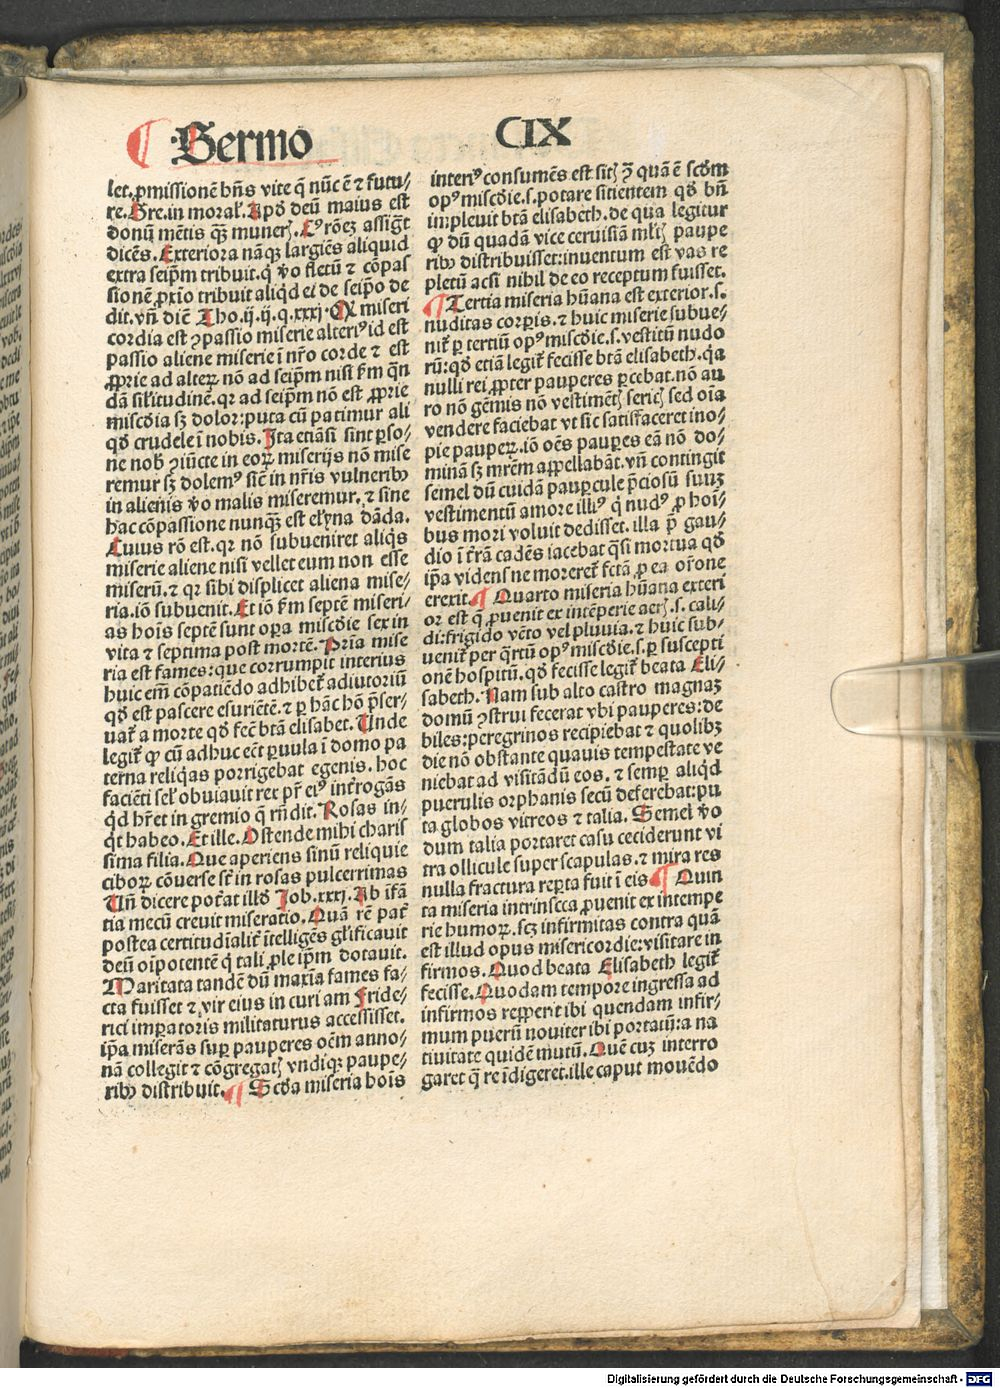 ¶ Sermo CIX
let. ꝓmissionē hn̄s vite q̄ nūc ē ⁊ futu⸗
re. Gre. in moral̕. Apd̕ deū maius est
donū mētis qȝ muneꝝ. Cꝰ rōeꝫ assigt̄
dicēs. Exteriora nāqȝ largiēs aliquid
extra seip̄m tribuit. q̄ v̕o fletū ⁊ cōpas
sionē ꝓxio tribuit aliqd̕ ei de seip̄o de
dit. vn̄ diē Tho. ij. ij. q. xxxj. Ꝙ miseri
cordia est ꝯpassio miserie alteriꝰ id est
passio aliene miserie ī nr̄o corde ⁊ est
ꝓprie ad alteꝝ nō ad seip̄m nisi ẜm qn̄
dā sil̕itudinē. qꝛ ad seip̄m nō est ꝓprie
misc̄dia sꝫ dolor: puta cū patimur ali
qd̕ crudele ī nobis. Ita etiāsi sint ꝑso⸗
ne nob̕ ꝯiūcte in eoꝝ miserijs nō mise
remur sꝫ dolemꝰ sic̄ in nr̄is vulneribꝰ
in alienis v̕o malis miseremur. ⁊ sine
hac cōpassione nunqȝ est el̕yna dāda.
Cuius rō est. qꝛ nō subueniret aliqs̕
miserie aliene nisi vellet eum non esse
miserū. ⁊ qꝛ sibi displicet aliena mise⸗
ria. iō subuenit. Et iō ẜm septē miseri⸗
as hoīs septē sunt oꝑa misc̄die sex in
vita ⁊ septima post mortē. Pr̄ia mise
ria est fames: que corrumpit interius
huic em̄ cōpatiēdo adhibet̄ adiutoriū
qd̕ est pascere esuriētē. ⁊ ꝑ hāc hō p̄ser⸗
uat̄ a morte qd̕ fec̄ btā elisabet. Unde
legit̄ ꝙ cū adhuc eēt ꝑuula ī domo pa
terna reliqas porrigebat egenis. hoc
faciēti sel̕ obuiauit rex pr̄ eiꝰ int̄rogās
qd̕ hr̄et in gremio q̄ rn̄dit. Rosas in⸗
qt̄ habeo. Et ille. Ostende mihi charis
sima filia. Que aperiens sinū reliquie
ciboꝝ cōuerse st̄ in rosas pulcerrimas
Un̄ dicere pot̄at illd̕ Job. xxxj. Ab īfā
tia mecū creuit miseratio. Quā rē pat̄
postea certitudīalit̄ ītelligēs gl̕ificauit
deū oīpotentē q̄ tali ꝓle ip̄m dotauit.
Maritata tandē dū maxīa fames fa⸗
cta fuisset ⁊ vir eius in curiam Fride⸗
rici imꝑatoris militaturus accessisset.
ip̄a miserās suꝑ pauperes oēm anno⸗
nā collegit ⁊ cōgregatꝫ vndiqȝ paupe⸗
ribꝰ distribuit. ¶ Scd̕a miseria hoīs
interiꝰ consumēs est sitꝫ ꝯ̄ quā ē scd̕m
opꝰ misc̄die. s. potare sitientem qd̕ bn̄
impleuit btā elisabeth. de qua legitur
ꝙ dū quadā vice ceruisiā ml̕tꝫ paupe
ribꝰ distribuisset: inuentum est vas re
pletū acsi nihil de eo receptum fuisset.
¶ Tertia miseria hūana est exterior. s.
nuditas corꝑis. ⁊ huic miserie subue⸗
nit̄ ꝑ tertiū opꝰ misc̄die. s. vestitū nudo
rū: qd̕ etiā legit̄ fecisse btā elisabeth. qa
nulli rei ꝓpter pauperes ꝑcebat. nō au
ro nō gēmis nō vestimētꝫ sericꝫ sed oīa
vendere faciebat vt sic satisfaceret ino⸗
pie pauꝑeꝝ. iō oēs pauꝑes eā nō do⸗
minā sꝫ mr̄em appellabāt. vn̄ contingit
semel dū cuidā pauꝑcule p̄ciosū suuꝫ
vestimentū amore illiꝰ q̄ nudꝰ ꝓ hoī⸗
bus mori voluit dedisset. illa p̄ gau⸗
dio ī tr̄ā cadēs iacebat qsi mortua qd̕
ip̄a vidensne moreret̄ fctā ꝓ ea or̄one
erexit. ¶ Quarto miseria hūana exteri
or est q̄ ꝓuenit ex intēperie aerꝫ. s. cali⸗
di: frigido vēto vel pluuia. ⁊ huic sub⸗
uenit̄ per qr̄tū opꝰ misc̄die. s. ꝑ suscepti
onē hospitū. qd̕ fecisse legit̄ beata Eli⸗
sabeth. Nam sub alto castro magnaꝫ
domū ꝯstrui fecerat vbi pauperes: de
biles: peregrinos recipiebat ⁊ quolibꝫ
die nō obstante quauis tempestate ve
niebat ad visitādū eos. ⁊ semꝑ aliqd̕
puerulis orphanis secū deferebat: pu
ta globos vitreos ⁊ talia. Semel v̕o
dum talia portaret casu ceciderunt vi
tra ollicule super scapulas. ⁊ mira res
nulla fractura reꝑta fuit ī eis ¶ Quin
ta miseria intrinseca ꝓuenit ex intempe
rie humoꝝ. scꝫ infirmitas contra quā
est illud opus misericordie: visitare in
firmos. Quod beata Elisabeth legit̄
fecisse. Quodam tempore ingressa ad
infirmos reꝑperit ibi quendam infir⸗
mum puerū nouiter ibi portatū: a na
tiuitate quidē mutū. Quē cuꝫ interro
garet q̄ re īdigeret. ille caput mouēdo
Digitalisierung gefördert durch die Deutsche Forschungsgemeinschaft - DFG